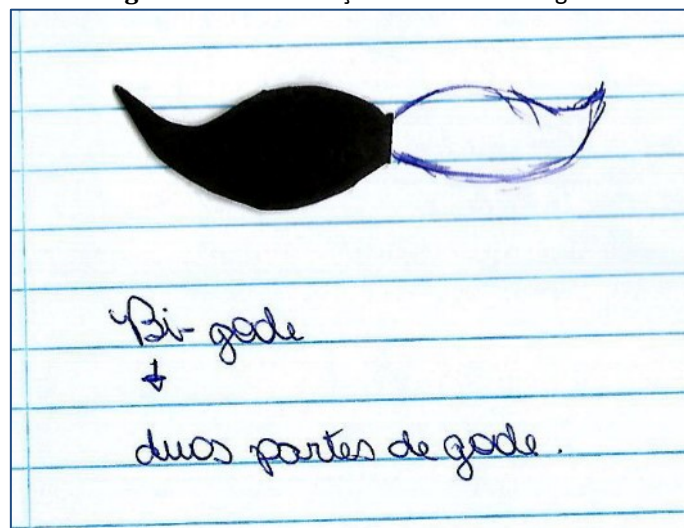 Bi-gode
↓
duas partes de gode.